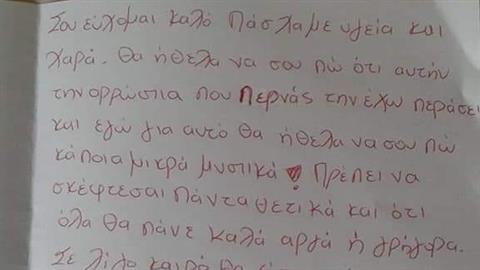 Σου εύχομαι καλό Πάσχα με υγεία και
χαρά. Θα ήθελα να σου πώ ότι αυτήν
την αρρώστια που περνάς την έχω περάσει
και εγώ για αυτό θα ήθελα να σου πώ
κάποια μικρά μυστικά! Πρέπει να
σκέφτεσαι πάντα θετικά και ότι
όλα θα πάνε καλά αργά ή γρήγορα.
Σε λίγο καιρό θα